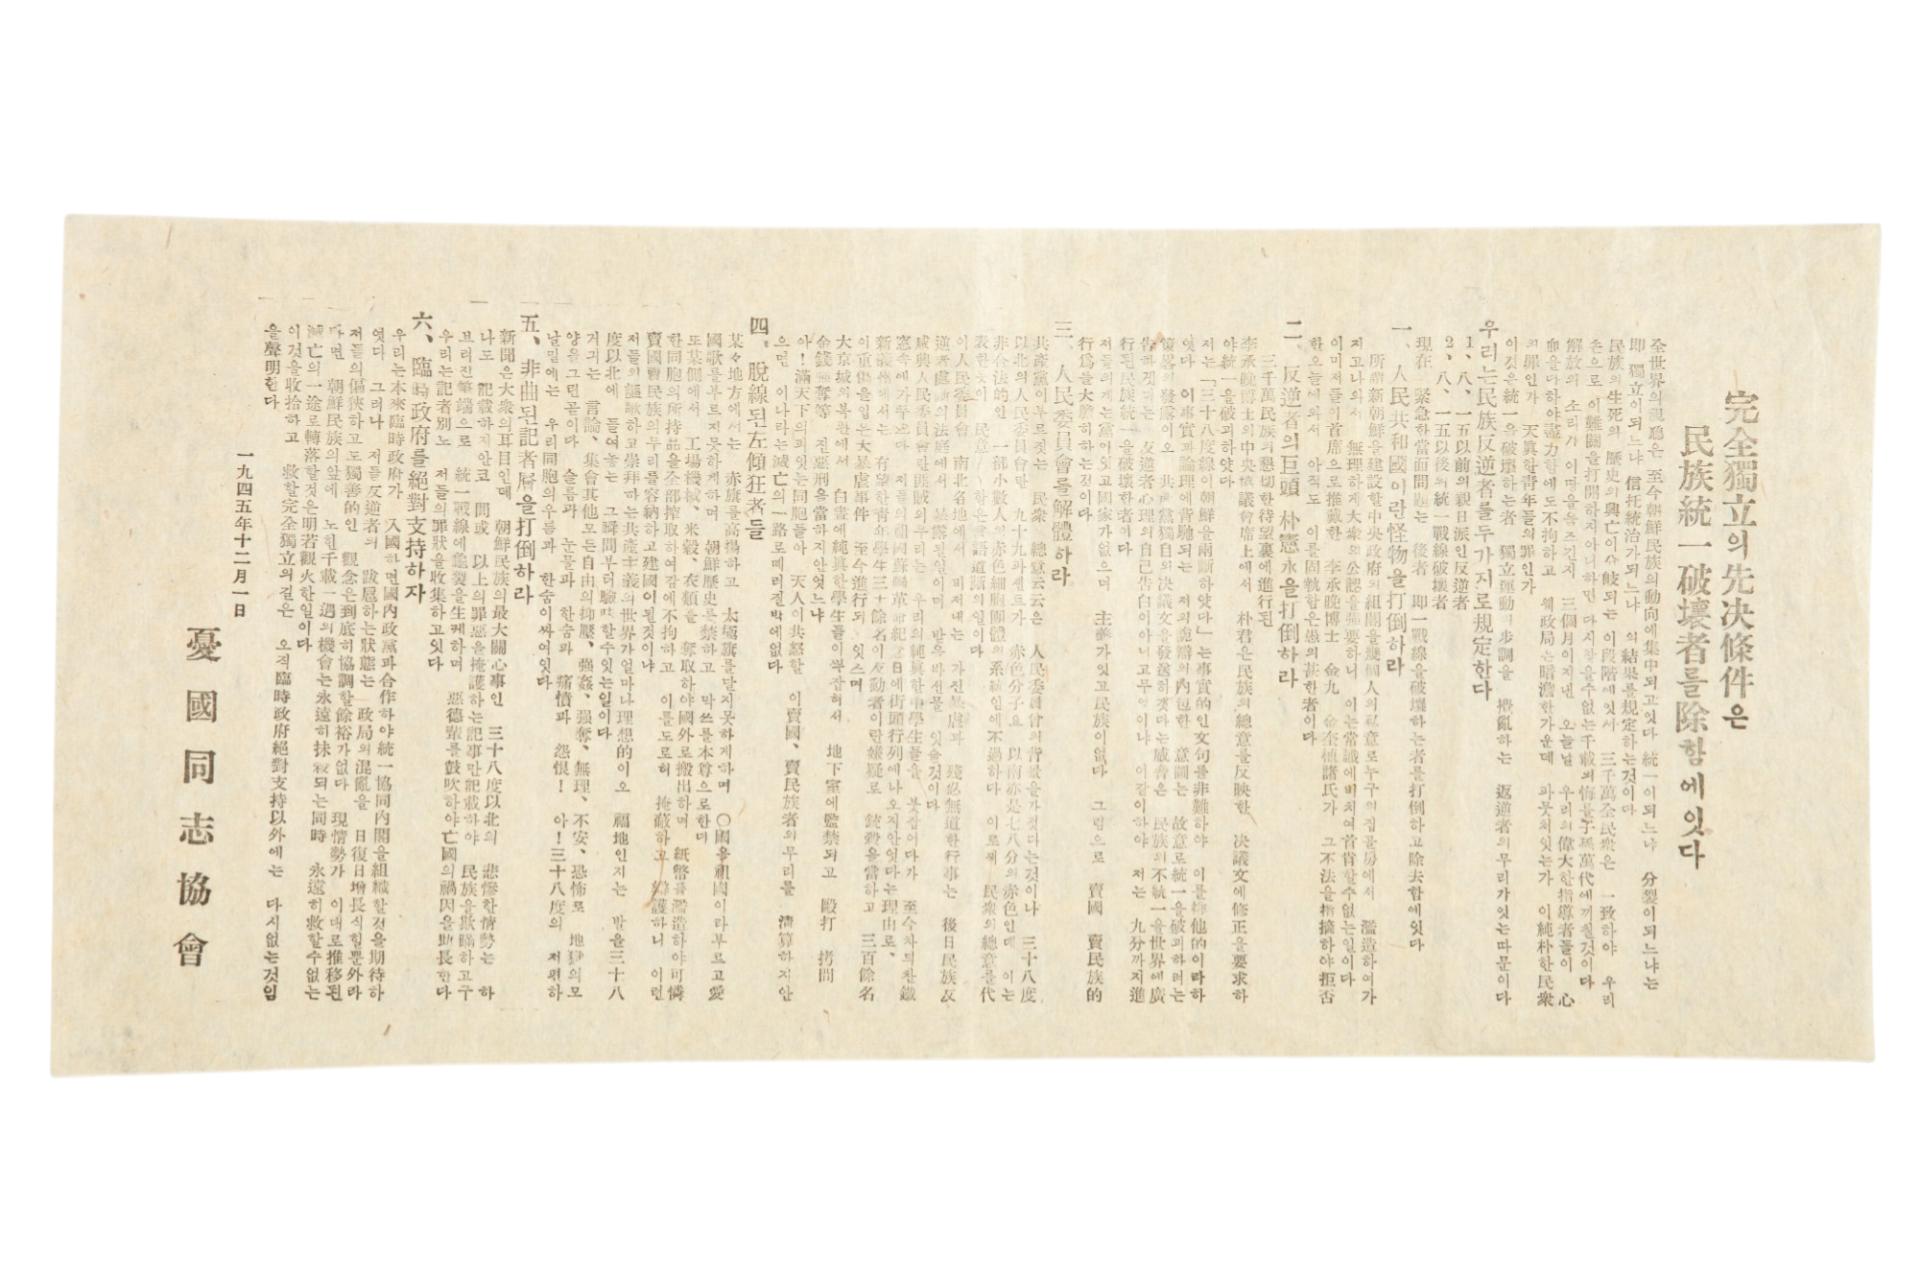 完全獨立의先決條件은
民族統一破壞者를除함에잇다
全世界의視聽은 至今朝鮮民族의動向에集中되고잇다 統一이되느냐 分裂이되느냐는
即 獨立이되느냐 信托統治가되느냐 의結果를規定하는것이다
民族의生死와 歷史의興亡이 岐되는 이段階에잇서 三千萬全民衆은 一致하야 우리
손으로 이難關을打開하지아니하면 다시참을수없는千載의悔를子孫萬代에끼칠것이다
解放의 소리가 이땅을 즈긴지 三個月이지낸 오늘널 우리의偉大한指導者들이 心
血을다하야盡力함에도不拘하고 웨政局은暗澹한가운데 파뭇처잇는가 이純朴한民衆
의罪인가 天眞한靑年들의罪인가
이것은統一을破壞하는者 獨立運動의步調을 攪亂하는 返逆者의무리가잇는따문이다
우리는民族反逆者를두가지로規定한다
1、八、一五以前의親日派인反逆者
2、八、一五以後의統一戰線破壞者
現在 緊急한當面問題는 後者 即一戰線을破壞하는者를打倒하고除去함에잇다
一、人民共和國이란怪物을打倒하라
所謂新朝鮮을建設할中央政府의組閣을幾個人의私意로누구의집울房에서 濫造하여가
지고나와서 無理하게大衆의公認을强要하니 이는常識에비처여首肯할수없는일이다
이미저들이首席으로推戴한 李承晩博士 金九 金奎植諸氏가 그不法을指摘하야拒否
한오늘에와서 아직도 이를固執함은愚의甚한者이다
二、反逆者의巨頭 朴憲永을打倒하라
三千萬民族의懇切한待望裏에進行된
李承晩博士의中央協議會席上에서 朴君은民族의總意를反映한 決議文에修正을要求하
야統一을破괴하얏다
저는「三十八度線이朝鮮을兩斷하얏다」는事實的인文句를非難하야 이를排他的이라하
엿다 이事實과論理에背馳되는 저의詭辯의內包한 意圖는 故意로統一을破괴하려는
策略의發露이오 共産黨獨自의決議文을發送하겟다는威脅은 民族의不統一을世界에廣
告하겟다는 反逆者心理의自己告白이아니고무엇이냐 이같이하야 저는 九分까지進
行된民族統一을破壞한者이다
저들의게는黨이잇고國家가없으며 主義가잇고民族이없다 그럼으로 賣國 賣民族的
行爲를大膽히하는것이다
三、人民委員會를解體하라
共産黨이부르짓는 民衆 總意云云은 人民委員會의背景을가젓다는것이나 三十八度
以北의人民委員會만 九十九파센트가 赤色分子요 以南亦是七八分의赤色인데 이는
非合法的인 一部小數人의赤色細胞團體의系統인에不過하다 이로써 民衆의總意를代
表한듯이 民意 함은言語道斷의일이다
이人民委員會 南北名地에서 비저내는 가진暴虐과 殘忍無道한行事는 後日民族反
逆者處斷의法庭에서 暴露될일이며 한우리는 잇슬것이다
咸興人民委員會란匪賊의무리는 우리의純眞한中學生들을 붓잡아다가 至今차듸찬鐵
窓속에가두엇다 저들의祖國蘇聯革命紀念日에街頭行列에나오지안엇다는理由로、
新義州에서는 有望한靑年學生三十餘名이反動者이란嫌疑로 銃殺을當하고 三百餘名
이重傷을입은大暴虐事件 至今進行되 잇스며
大京城의복판에서 白晝에純眞한學生들이부잡혀서 地下室에監禁되고 毆打 拷問
金錢强奪等 진惡刑을當하지안엇느냐
아!滿天下의피잇는同胞들아 天人이共怒할 이賣國、賣民族者의무리를 淸算하지안
으면 이나라는滅亡의一路로떠러질박에없다
四、脫線된左傾狂者들
某々地方에서는 赤旗를高揚하고 太極旗를달지못하게하며 〇國을祖國이라부르고愛
國歌를부르지못하게하며 朝鮮歷史를禁하고 막쓰를本尊으로한데
또某側에서 工場機械、米穀、衣類을 奪取하야國外로搬出하며 紙幣를濫造하야可憐
한同胞의所持品을全部搾取하여감에不拘하고 이를도로허 掩蔽하고 辯護하니 이런
賣國賣民族의무리를容納하고建國이될것이냐
저들의謳歌하고崇拜하는共産主義의世界가얼마나理想的이오 福地인지는 발을三十八
度以北에 들여놓는 그瞬間부터驗味할수잇는일이다
거긔는 言論、集會其他모든自由의抑壓、强姦、强奪、無理、不安、恐怖로 地獄의모
양을그린꼴이다 슬픔과 눈물과 한숨과 痛憤과 怨恨! 아!三十八度의 저편하
날밑에는 우리同胞의우름과 한숨이싸여잇다
五、非曲된記者層을打倒하라
新聞은大衆의耳目인데 朝鮮民族의最大關心事인 三十八度以北의 悲慘한情勢는 하
나도 記載하지안코 間或 以上의罪惡을掩護하는記事만記載하야 民族을欺瞞하고구
브러진筆端으로 統一戰線에龜裂을生케하며 惡德輩를鼓吹하야亡國의禍因을助長한다
우리는記者別노 저들의罪狀을收集하고잇다
六、臨時政府를絕對支持하자
우리는本來臨時政府가 入國하면國內政黨과合作하야統一協同內閣을組織할것을期待하
엿다 그러나 저들反逆者의 跋扈하는狀態는 政局의混亂을 日復日增長식힐뿐外라
저들의偏俠하고도獨善的인 觀念은到底히協調할餘裕가없다 現情勢가 이대로推移된
다면 朝鮮民族의앞에 노힌千載一遇의機會는永遠히抹殺되는同時 永遠히救할수없는
滅亡의一途로轉落할것은明若觀火한일이다
이것을收拾하고 救할完全獨立의길은 오직臨時政府絕對支持以外에는 다시없는것임
을聲明한다
一九四五年十二月一日
憂國同志協會